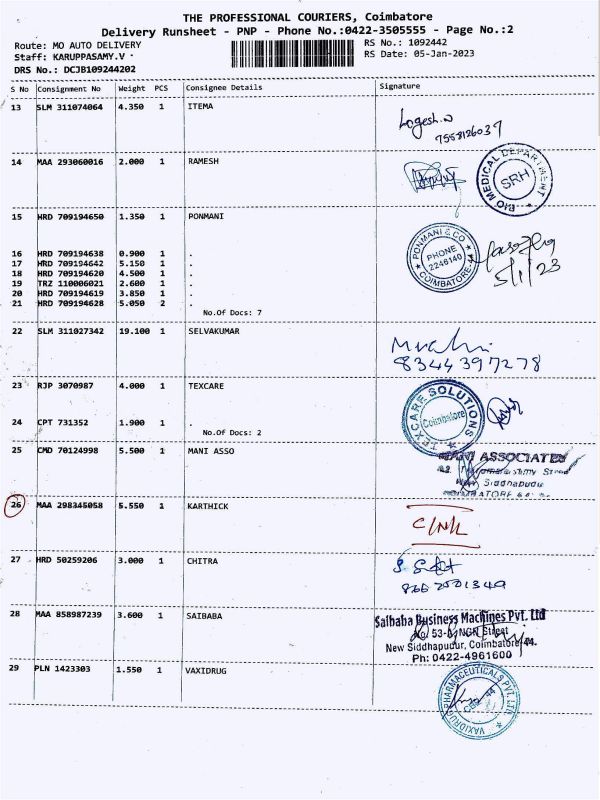 THE PROFESSIONAL COURIERS, Coimbatore
Delivery Runsheet - PNP - Phone No.:0422-3505555 - Page No.:2
Route: MO AUTO DELIVERY
RS No.: 1092442
Staff: KARUPPASAMY.V
RS Date: 05-Jan-2023
DRS No.: DCJB109244202
S No Consignment No Weight PCS Consignee Details Signature
13 SLM 311074064 4.350 1 ITEMA
Logesh.
7558126037
14 MAA 293060016 2.000 1 RAMESH
BIO MEDICAL DEPARTMENT
SRH
15 HRD 709194650 1.350 1 PONMANI
PONMANI & CO
PHONE
2246140
COIMBATORE-44
5/1/23
16 HRD 709194638 0.900 1 .
17 HRD 709194642 5.150 1 .
18 HRD 709194620 4.500 1 .
19 TRZ 110006021 2.600 1 .
20 HRD 709194619 3.850 1 .
21 HRD 709194628 5.050 2 .
No.Of Docs: 7
22 SLM 311027342 19.100 1 SELVAKUMAR
8344397278
23 RJP 3070987 4.000 1 TEXCARE
TEXCARE SOLUTIONS
Coimbalore
24 CPT 731352 1.900 1 .
No.Of Docs: 2
25 CMD 70124998 5.500 1 MANI ASSO
MANI ASSOCIATES
Siddhapudur
26 MAA 298345058 5.550 1 KARTHICK
27 HRD 50259206 3.000 1 CHITRA
28 MAA 858987239 3.600 1 SAIBABA
Saibaba Business Machines Pvt. Ltd
No. 53- NGN Street
New Siddhapudur, Coimbatore 44.
Ph: 0422-4961600
29 PLN 1423303 1.550 1 VAXIDRUG
VAXIDRUG PHARMACEUTICALS PVT. LTD
CBE - 44